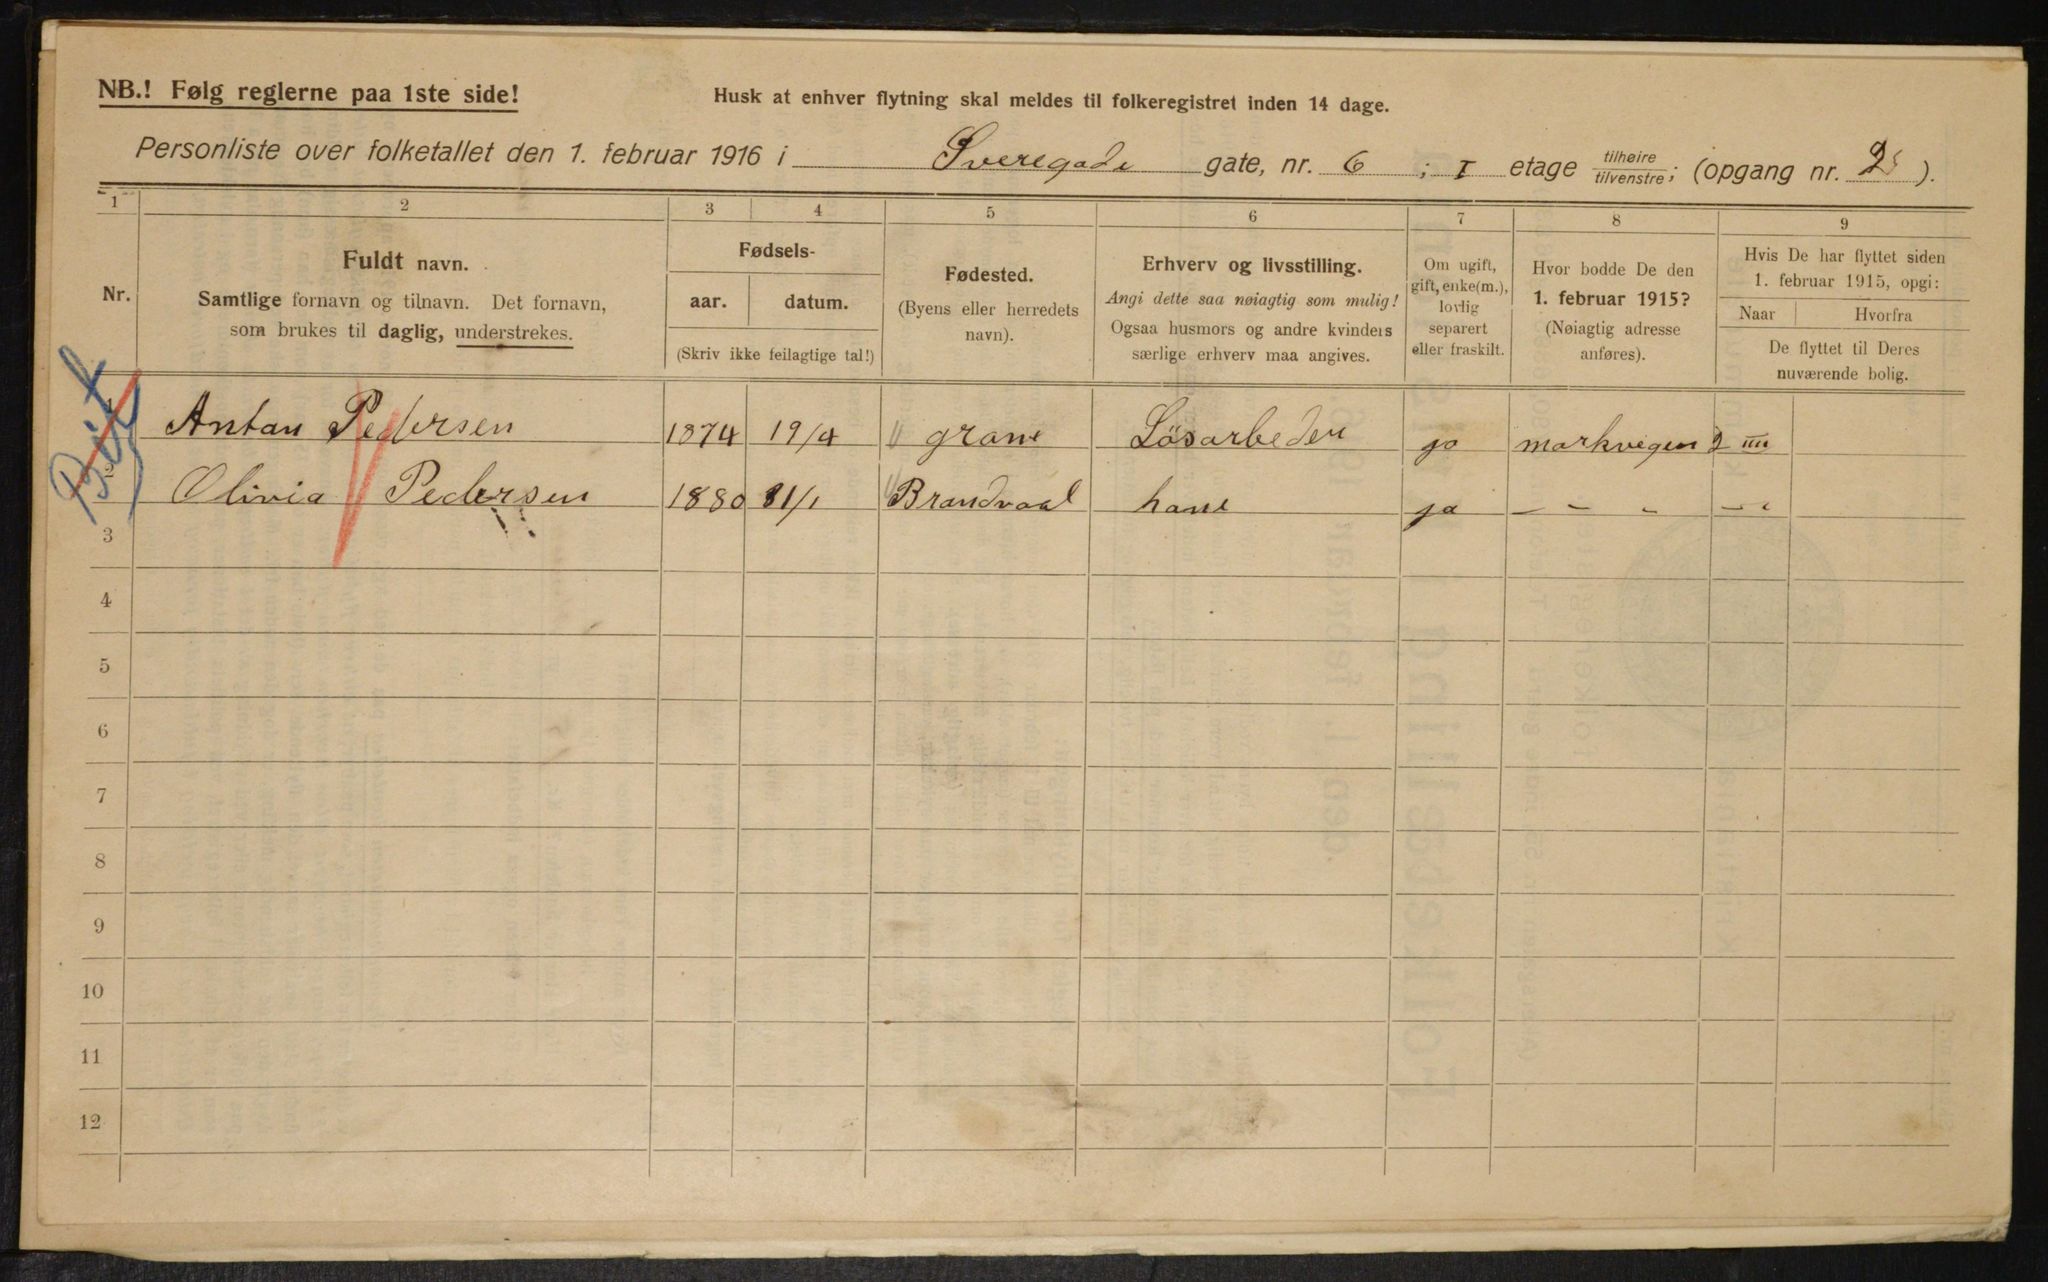 NB.! Følg reglerne paa 1ste side!
Husk at enhver flytning skal meldes til folkeregistret inden 14 dage.
Personliste over folketallet den 1. februar 1916 i Sveregade gate, nr. 6 ; I etage tilhøire / tilvenstre ; (opgang nr. 2 ).
1 2 3 4 5 6 7 8 9
Nr.
Fuldt navn.
Samtlige fornavn og tilnavn. Det fornavn,
som brukes til daglig, understrekes.
Fødsels-
aar. datum.
(Skriv ikke feilagtige tal!)
Fødested.
(Byens eller herredets
navn).
Erhverv og livsstilling.
Angi dette saa nøiagtig som mulig!
Ogsaa husmors og andre kvinders
særlige erhverv maa angives.
Om ugift,
gift, enke(m.),
lovlig
separert
eller fraskilt.
Hvor bodde De den
1. februar 1915?
(Nøiagtig adresse
anføres).
Hvis De har flyttet siden
1. februar 1915, opgi:
Naar Hvorfra
De flyttet til Deres
nuværende bolig.
Antan Pedersen 1874 19/4 grane Løsarbeder ja markvegen 2 IIII
2 Olivia Pedersen 1880 31/1 Brandvaal hane ja – – – – –
3
4
5
6
7
8
9
10
11
12